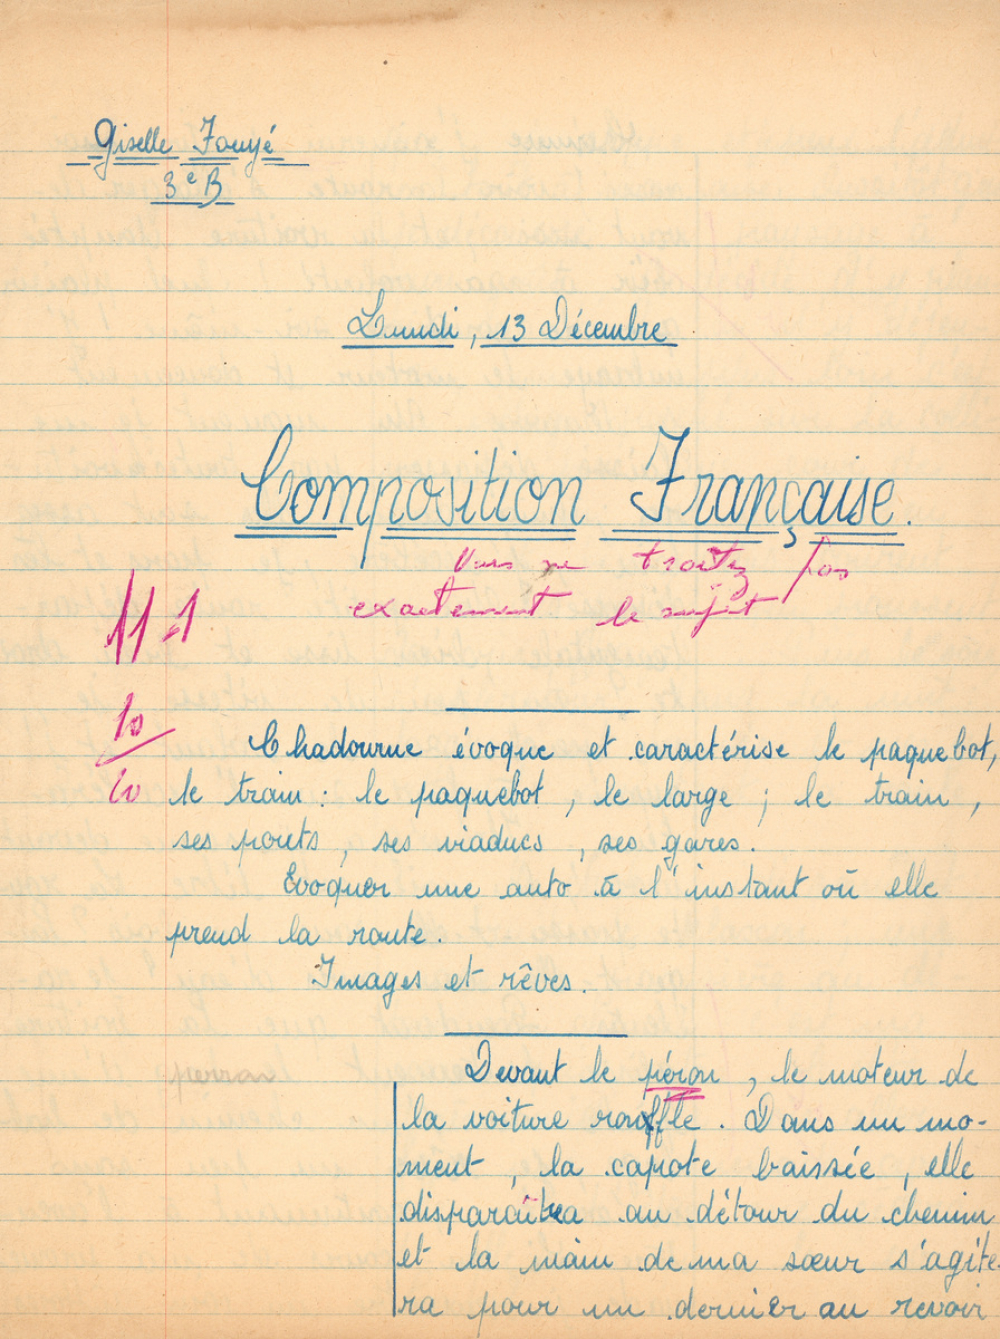 Giselle Fouyé
3e B
Lundi, 13 Décembre
Composition Française.
Vous ne traitez pas
exactement le sujet
11
10
20
Chadourne évoque et caractérise le paquebot,
le train : le paquebot, le large ; le train,
ses ponts, ses viaducs, ses gares.
Evoquer une auto à l'instant où elle
prend la route.
Images et rêves.
perron
Devant le péron, le moteur de
la voiture ronfle. Dans un mo-
ment, la capote baissée, elle
disparaîtra au détour du chemin
et la main de ma sœur s'agite-
ra pour un dernier au revoir